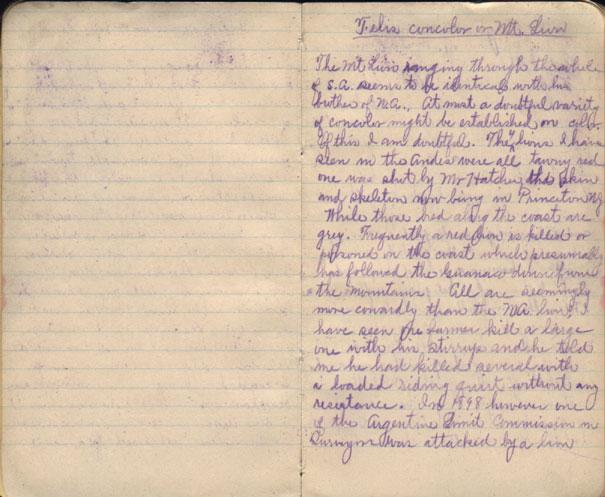 Felis concolor or Mt. Lion
The Mt Lion ranging through the whole
of S.A. seems to be identical with his
brother of N.A., At most a doubtful variety
of concolor might be established on color.
Of this I am doubtful. The lions I have
seen in the Andes were all tawny red
one was shot by Mr Hatcher, the skin
and skeleton now being in Princeton NJ
While those bred along the coast are
grey. Frequently a red lion is killed or
poisoned on the coast which presumably
has followed the Guanaco down from
the mountains All are seemingly
more cowardly than the N.A. lion. I
have seen one farmer kill a large
one with his stirrups and he told
me he had killed several with
a loaded riding quirt without any
resistance. In 1898 however one
of the Argentine Limit Commission in
was attacked by a lion